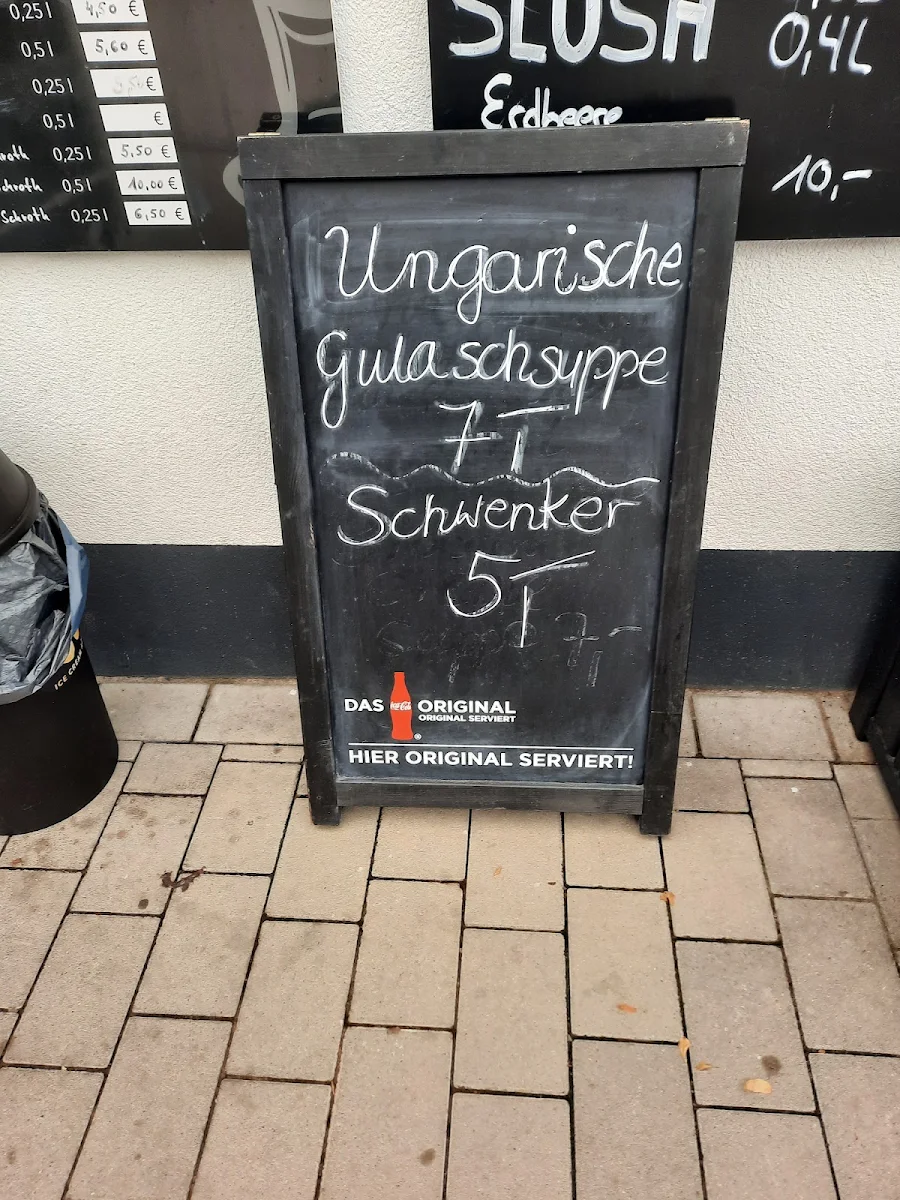 0,25l 4,50 €
0,5l 5,60 €
0,25l €
0,5l €
0,25l 5,50 €
0,5l 10,00 €
Schroth 0,25l 6,50 €
SLUSH
0,4L
Erdbeere
10,-
Ungarische
Gulaschsuppe
7,-
Schwenker
5,-
Suppe 7,-
DAS Coca-Cola ORIGINAL
ORIGINAL SERVIERT
HIER ORIGINAL SERVIERT!
ICE CREAM